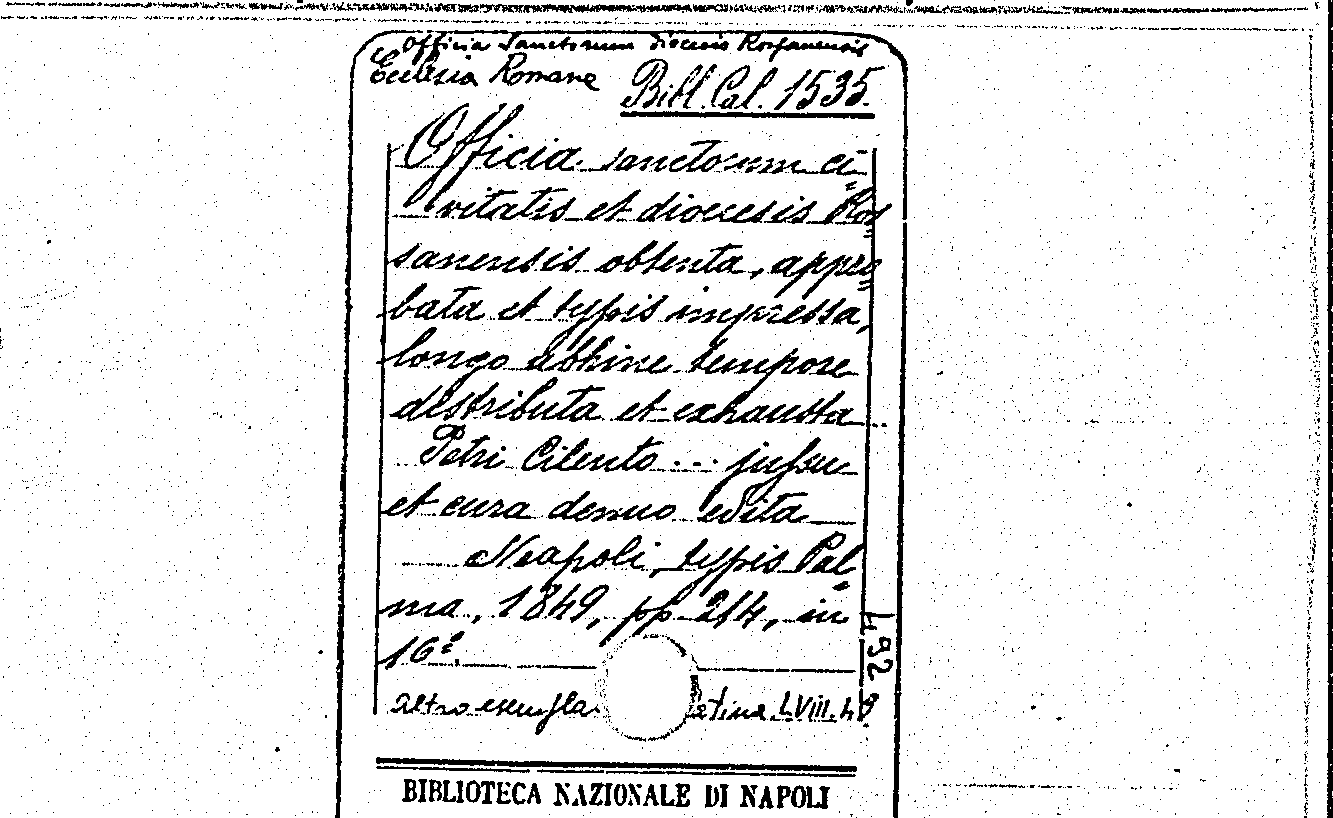 Officia Sanctorum diocesis Rossanensis
Ecclesia Romane
Bibl. Cal. 1535.
Officia sanctorum ci=
vitatis et diocesis Ros=
sanensis obtenta, appro=
bata et typis impressa,
longo abhinc tempore
distributa et exhausta
Petri Cilento ... jussu
et cura denuo edita
Neapoli, typis Pal=
ma, 1849, pp. 214, in
16°.
altro esempla LVIII.
BIBLIOTECA NAZIONALE DI NAPOLI